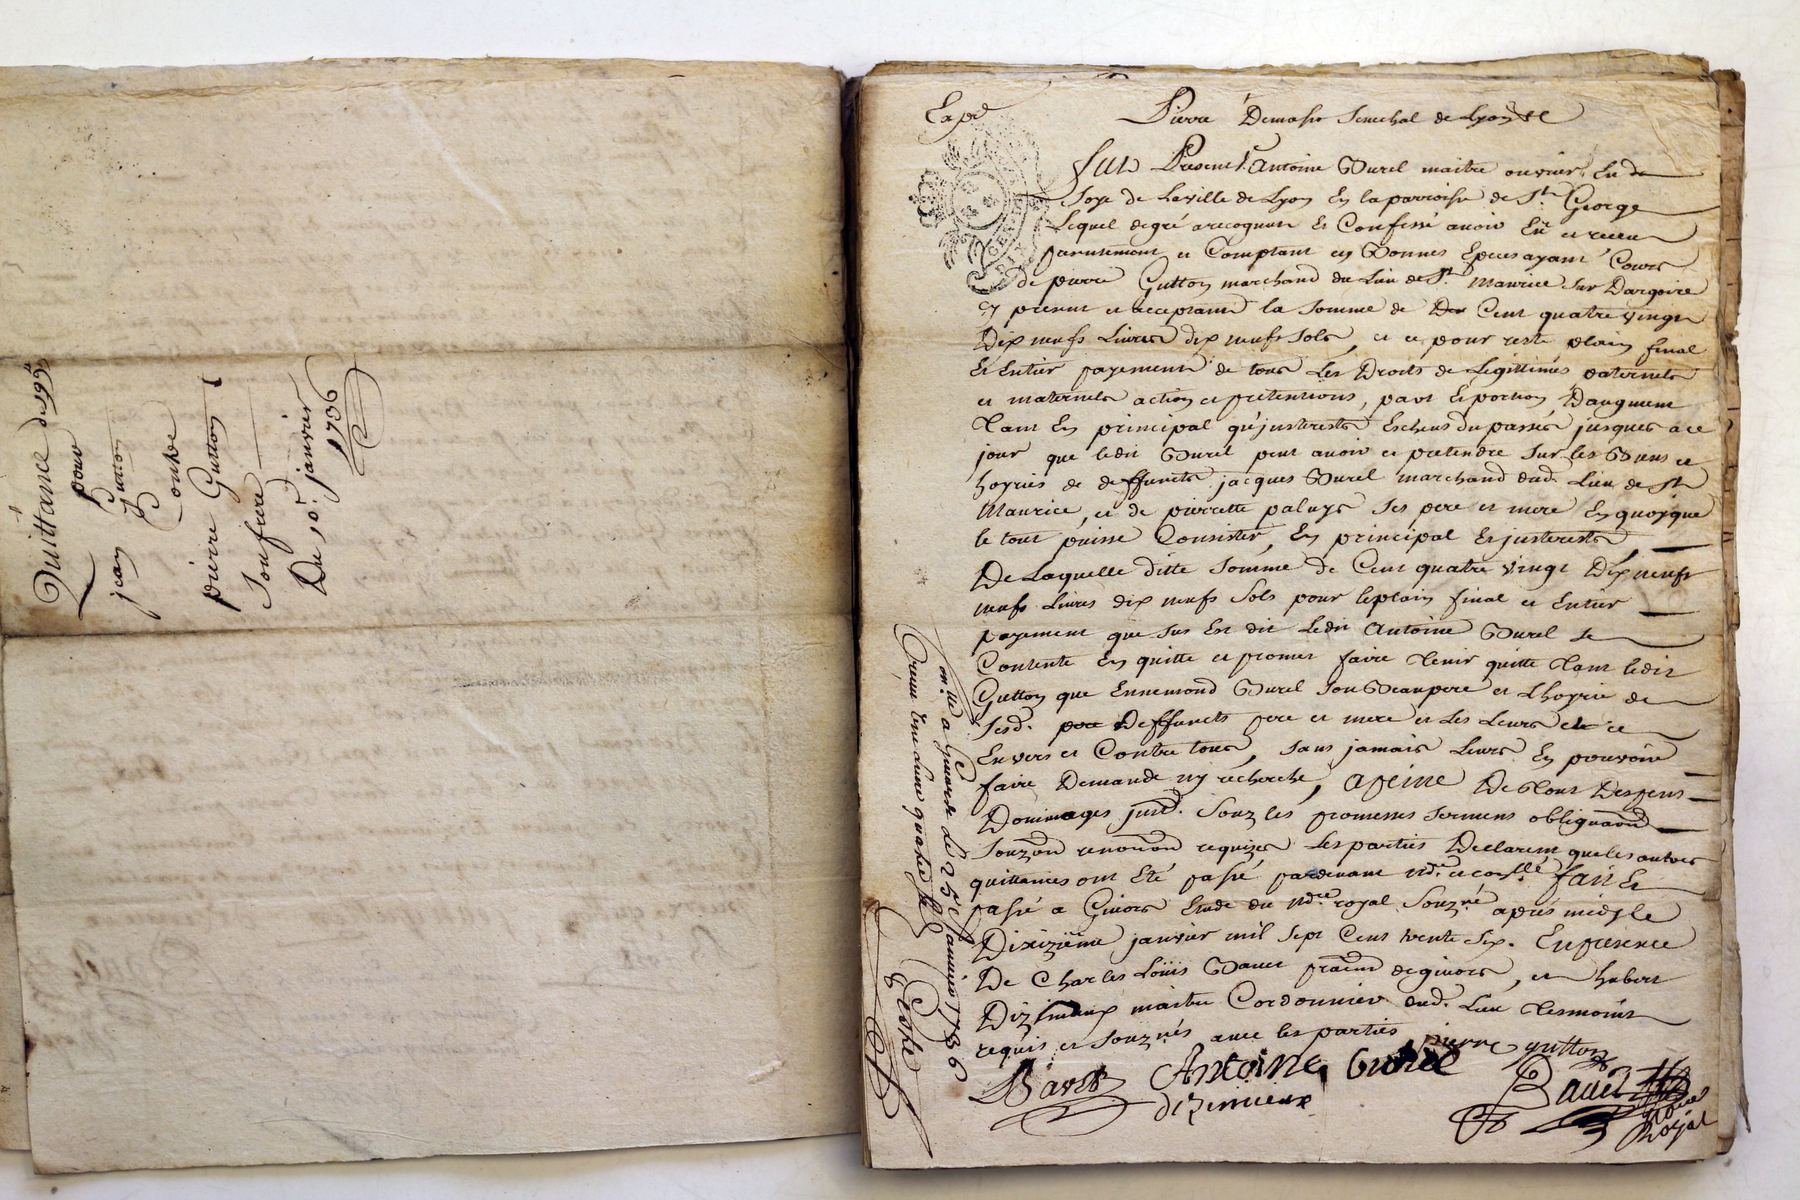 Quittance de 199#
pour
jean Burton
Contre
pierre Gutton
Son frere
Du 10e janvier
1736
Expé
Pierre Demasso Senechal de Lyon &c
GENER
Fut Present Sr Antoine Burel maitre ouvrier En de
Soye de La ville de Lyon En la parroisse de St George
Lequel de gré a recognu Et Confessé avoir Eu et receu
presentement et Comptant en Bonnes Especes ayant Cours
de pierre Gutton marchand du Lieu de St Maurice Sur Dargoire
Cy present et acceptant la Somme de Cent quatre vingt
Dix neufs Livres dix neufs Sols, et ce pour reste plain final
Et Entier payement de tous Les Droits de Legittimes paternels
et maternels action et pretentions, part Et portion Daugment
Tant En principal qu'justerests Escheus du passé jusques a ce
jour que ledit Burel peut avoir et pretendre Sur les Biens et
hoyries de deffuncts jacques Burel marchand dud. Lieu de St
Maurice, et de pierrette paluys Ses pere et mere En quoy que
le tout puisse Consister, En principal Et justerests
De Laquelle ditte Somme de Cent quatre vingt Dix neufs
neufs Livres dix neufs Sols pour le plain final et Entier
payement que Sus Est dit Ledit Antoine Burel Se
Contente En quitte et promet faire Tenir quitte Tant ledit
Gutton que Ennemond Burel Son Beaupere et Lhoyrie de
Sesd. pere Deffuncts pere et mere et Les Leurs et ce
Envers et Contre tous, Sans jamais Leurs En pouvoir
faire Demande ny recherche, a peine De Tous Despens
Dommages justd. Souz les promesses Sermens obligaond
Souzond renonond requises Les parties Declarent que les autres
quittances ont Eté passé pardevant ndre et conslle fait Et
passé a Givors Etude du ndre royal Souzné aprés midy le
Dixiziême janvier mil Sept Cent trente Six. En presence
De Charles Loüis Bavet praond de givors, et hubert
Dizimieux maitre Cordonnier dud. Lieu Tesmoins
requis et Souznés avec les parties
pierre gutton
Bavet
Antoine burel
dizimieux
Bavet
Nore
Royal
on.lle a Givors Le 25e Janvier 1736
receu une Livre quatre s.